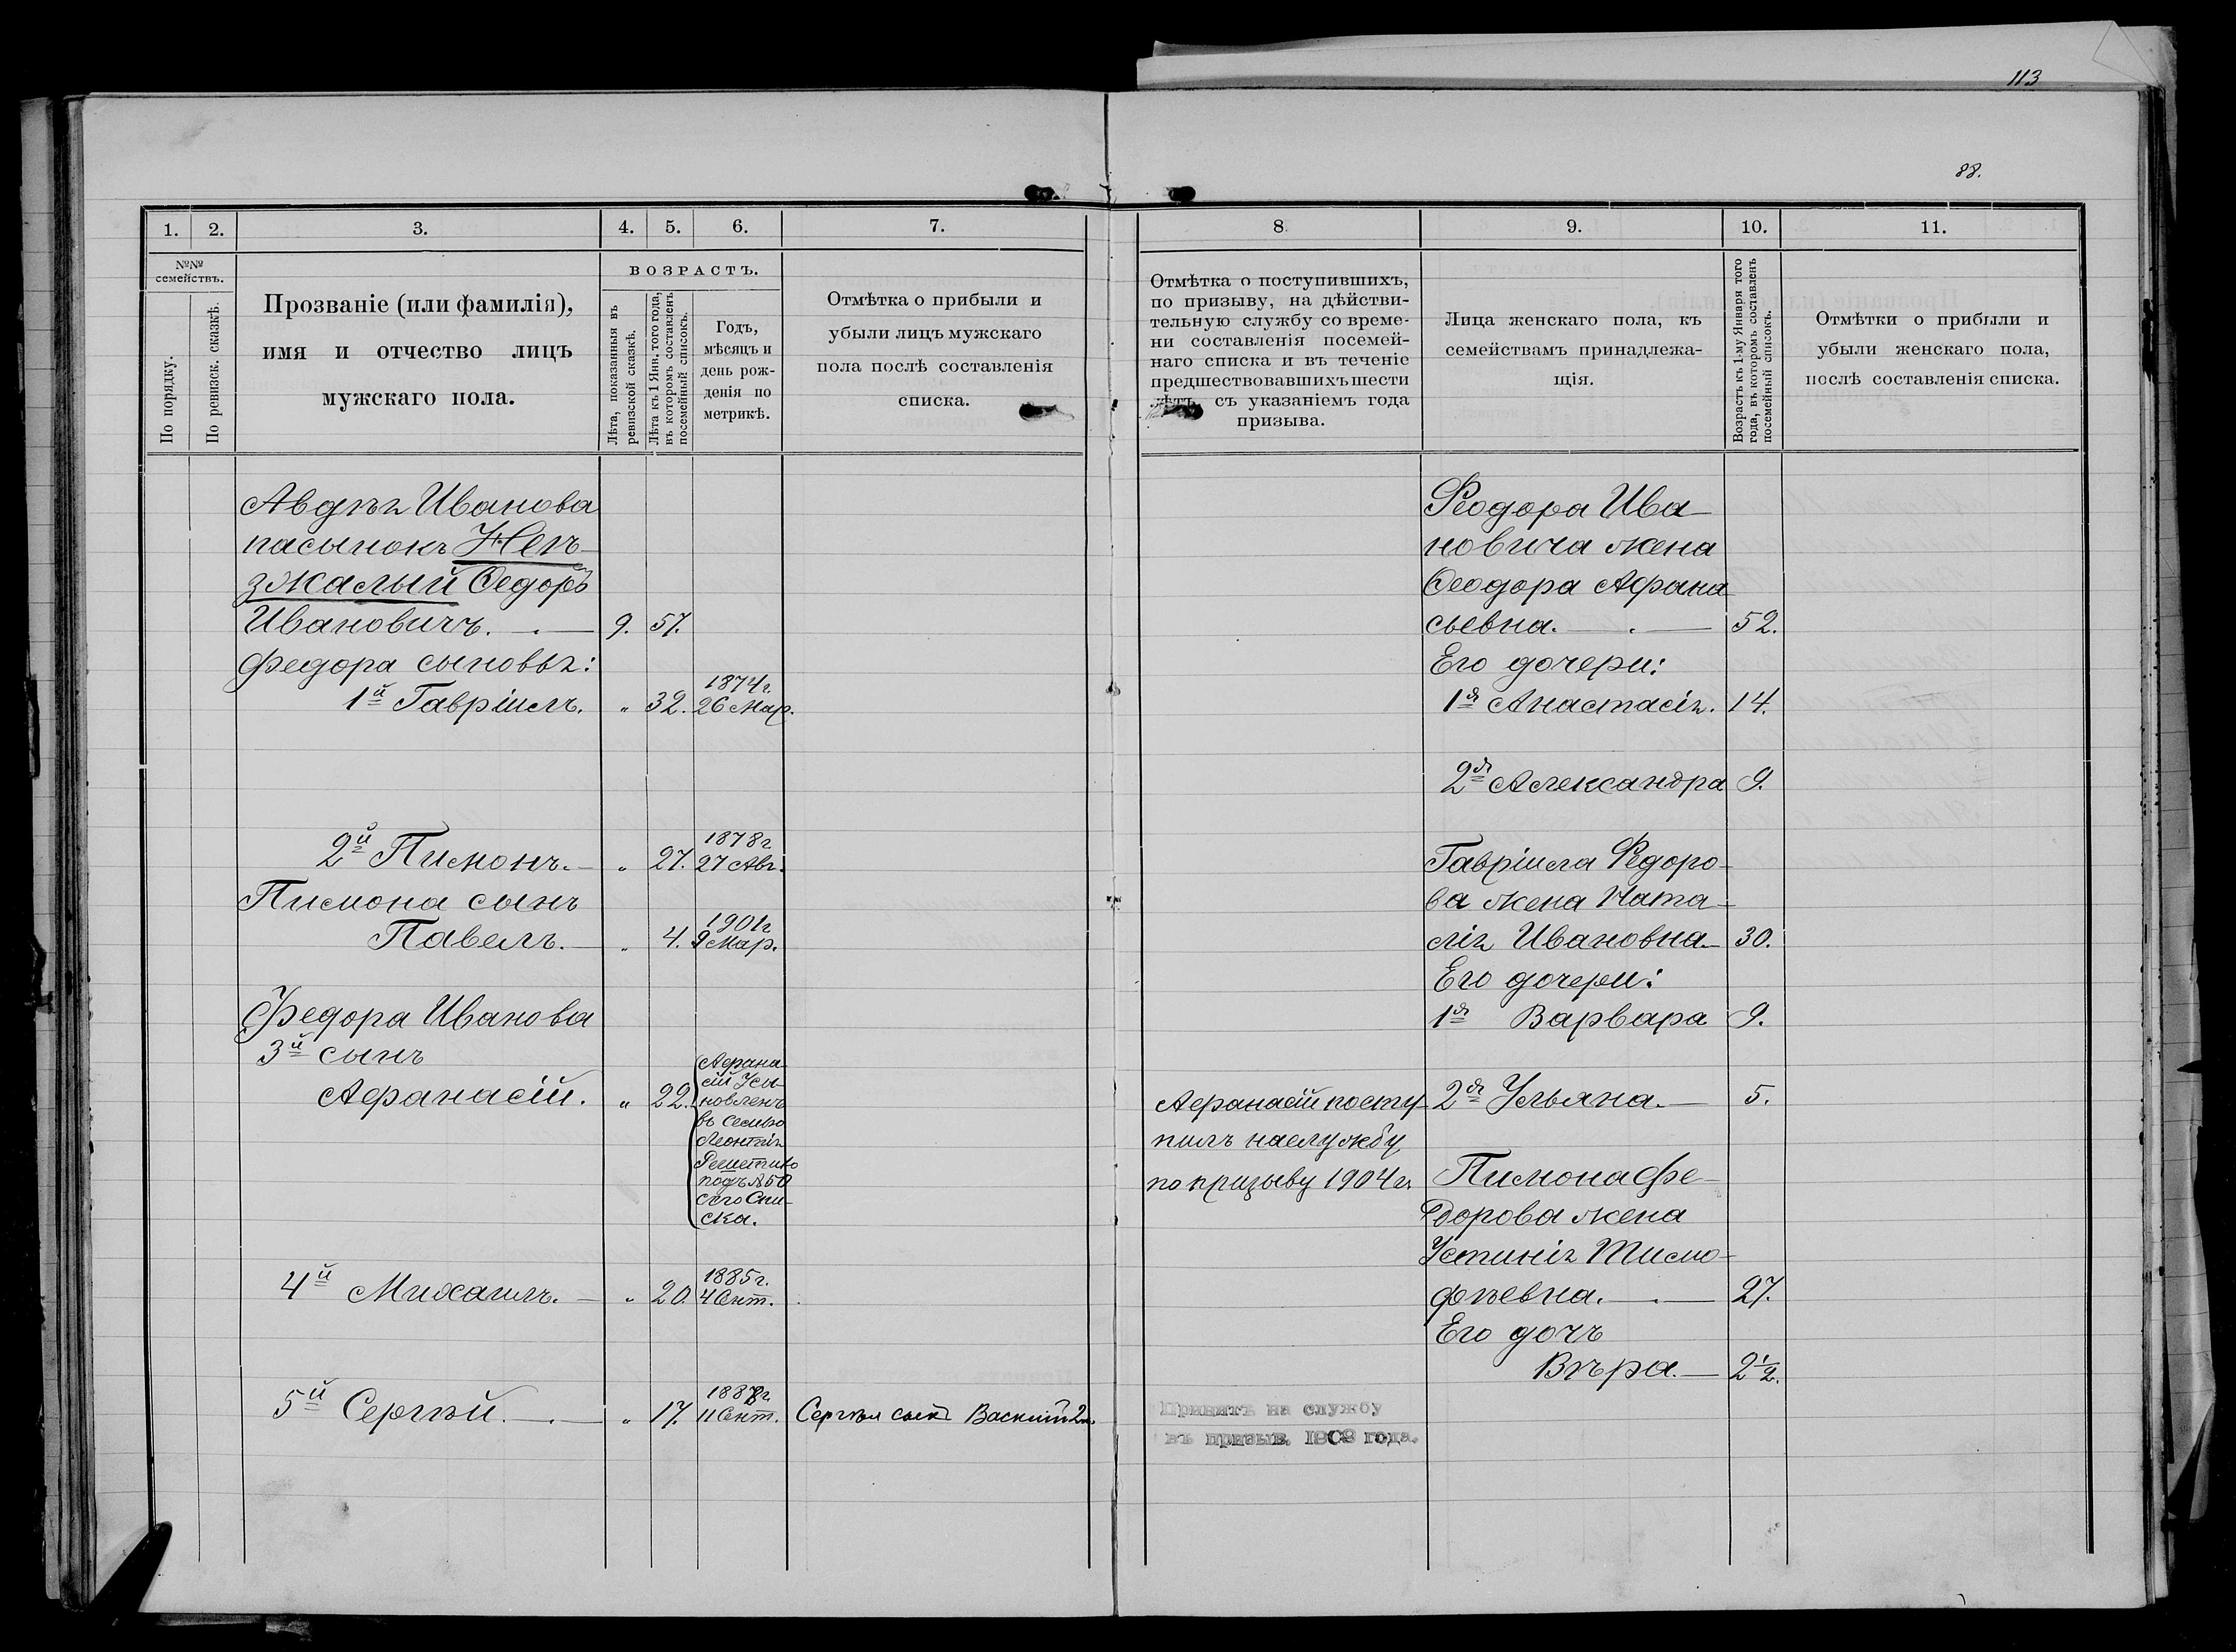 113
88.
1. 2. 3. 4. 5. 6. 7.
№№ семействъ.
По порядку.
По ревизск. сказкѣ.
Прозваніе (или фамилія),
имя и отчество лицъ
мужскаго пола.
ВОЗРАСТЪ.
Лѣта, показанныя въ
ревизской сказкѣ.
Лѣта къ 1 Янв. того года,
въ которомъ составленъ
посемейный списокъ.
Годъ,
мѣсяцъ и
день рож-
денія по
метрикѣ.
Отмѣтка о прибыли и
убыли лицъ мужскаго
пола послѣ составленія
списка.
Авдѣя Иванова
пасынокъ Непъ-
зжалый Ѳедоръ
Ивановичъ. 9. 57.
Федора сыновья:
1й Гавріилъ. " 32. 1874г. 26 Мар.
2й Пимонъ. " 27. 1878г 27 Авг.
Пимона сынъ
Павелъ. " 4. 1901г 9 Мар.
Федора Иванова
3й сынъ
Афанасій. " 22.
Афана-
сій Усы-
новленъ
въ семью
Леонтія
подъ №50
сего Спи-
ска.
4й Михаилъ. " 20. 1885г. 4 Сент.
5й Сергѣй. " 17. 1887г. 11 Сент. Сергѣя сынъ
8 9. 10. 11.
Отмѣтка о поступившихъ,
по призыву, на дѣйстви-
тельную службу со време-
ни составленія посемей-
наго списка и въ теченіе
предшествовавшихъ шести
лѣтъ, съ указаніемъ года
призыва.
Лица женскаго пола, къ
семействамъ принадлежа-
щія.
Возрастъ къ 1-му Января того
года, въ которомъ составленъ
посемейный списокъ.
Отмѣтки о прибыли и
убыли женскаго пола,
послѣ составленія списка.
Ѳеодора Ива-
новича жена
Ѳеодора Афана
сьевна. 52.
Его дочери:
1я Анастасія. 14.
2я Александра 9.
Гавріила Ѳедоро-
ва жена Ната-
лія Ивановна. 30.
Его дочери:
1я Варвара 9.
2я Ульяна. 5.
Афанасій посту-
пилъ на службу
по призыву 1904 г.
Пимона Фе-
дорова жена
Устинія Тимо-
фѣевна. 27.
Его дочь
Вѣра. 2½.
Принятъ на службу
въ призыв. 1908 года.